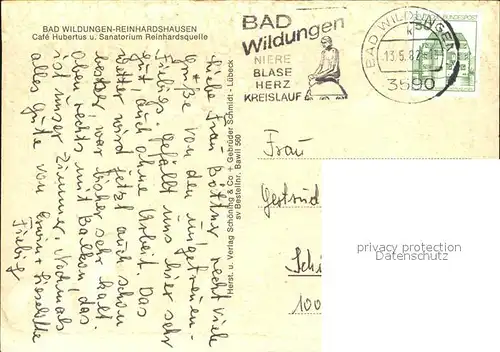 BAD WILDUNGEN-REINHARDSHAUSEN
Café Hubertus u. Sanatorium Reinhardsquelle
BAD
Wildungen
NIERE
BLASE
HERZ
KREISLAUF
BAD WILDUNGEN
13.5.82
3590
BUNDESPOST
50
Liebe Frau Böttner recht viele
Grüße von den ungetreuen
Fiebigs. Gefällt uns hier sehr
gut, auch ohne Arbeit. Das
Wetter wird jetzt auch schon
besser, war bisher sehr kalt.
Oben rechts mit Balkon, das
ist unser Zimmer. Nochmals
alles Gute von Erwin + Lieselotte
Fiebig
Herst. u. Verlag Schöning & Co + Gebrüder Schmidt - Lübeck
sv Bestellnr. Bawil 560
Frau
Gertrud
100
privacy protection
Datenschutz